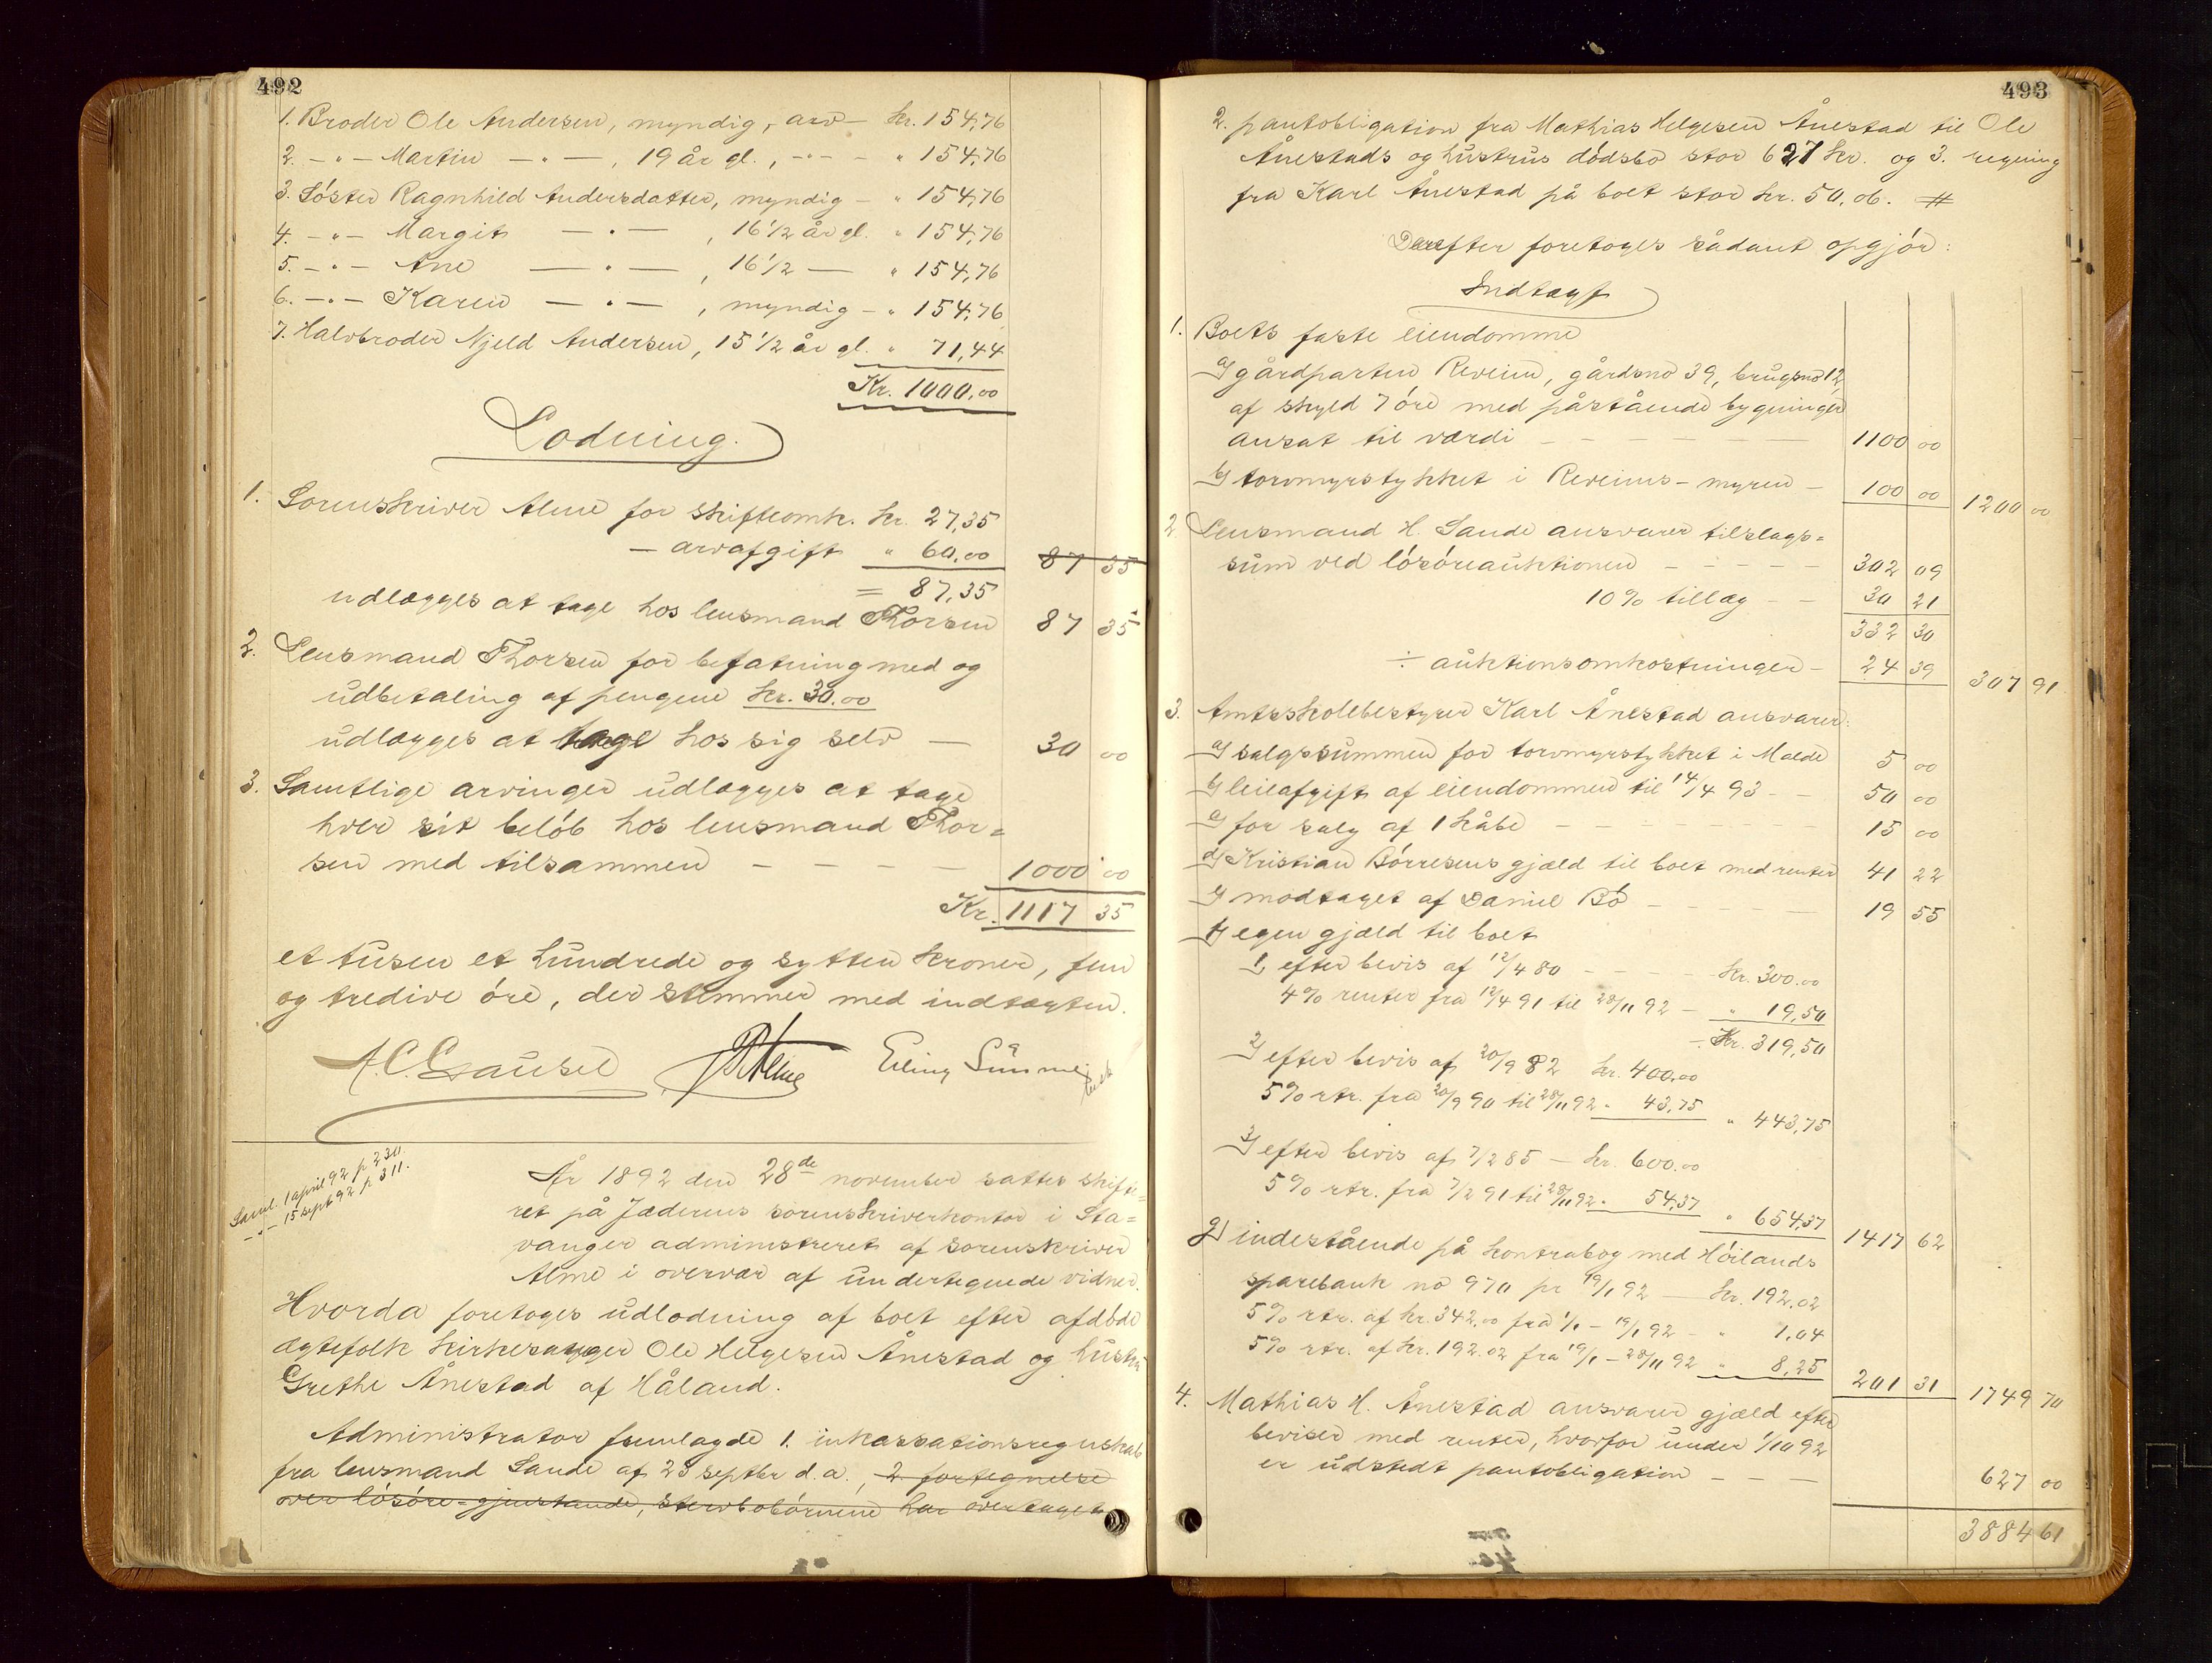 492
1. Broder Ole Andersen, myndig, arv – kr. 154,76
2. – " – Martin – " – , 19 år gl., – " – " 154,76
3. Söster Ragnhild Andersdatter, myndig – " 154,76
4. – " – Margit – " – , 16 1/2 år gl. " 154,76
5. – " – Ane – " – , 16 1/2 – " 154,76
6. – " – Karen – " – , myndig – " 154,76
7. Halvbroder Njeld Andersen, 15 1/2 år gl. " 71,44
Kr. 1000,00
Lodning.
1. Sorenskriver Alme for skifteomk. kr. 27,35
– arvafgift " 60,00 87 35
= 87,35
udlægges at tage hos lensmand Thorsen 87 35
2. Lensmand Thorsen for befatning med og
udbetaling af pengene kr. 30,00
udlægges at tage hos sig selv – 30 00
3. Samtlige arvinger udlægges at tage
hver sit belöb hos lensmand Thor=
sen med tilsammen – – – – 1000 00
Kr. 1117 35
et tusen et hundrede og sytten kroner, fem
og tredive öre, der stemmer med indtægten.
A. C. Gausel Alme Erling Sunme
Saml. 1 april 92 p 230.
– " – 15 sept 92 p 311.
År 1892 den 28de november sattes skifte=
ret på Jæderens sorenskriverkontor i Sta=
vanger administreret af sorenskriver
Alme i overvær af undertegnede vidner.
Hvorda foretoges udlodning af boet efter afdöde
ægtefolk kirkesanger Ole Helgesen Ånestad og hustru
Grethe Ånestad af Håland.
Administrator fremlagde 1. inkassationsregnskab
fra lensmand Sande af 23 septbr d.a., 2. fortegnelse
over lösöre-gjenstande, stervbobörnene har overtaget
493
2. pantobligation fra Mathias Helgesen Ånestad til Ole
Ånestads og hustrus dödsbo stor 627 kr. og 3. regning
fra Karl Ånestad på boet stor kr. 50,06. #
Derefter foretoges sådant opgjör:
Indtægt
1. Boets faste eiendomme
a) gårdparten Reveim, gårdsno 39, brugsno 12,
af skyld 7 öre med påstående bygninger
ansat til værdi – – – – – 1100 00
b) torvmyrstykket i Reveims-myren – 100 00 1200 00
2. Lensmand H. Sande ansvarer tilslags=
sum ved lösöreauktionen – – – – – 302 09
10% tillæg – – 30 21
332 30
÷ auktionsomkostninger – 24 39 307 91
3. Amtsskolebestyrer Karl Ånestad ansvarer:
a) salgssummen for torvmyrstykket i Malde 5 00
b) leieafgift af eiendommen til 14/4 93 – – 50 00
c) for salg af 1 kåbe – – – – – – 15 00
d) Kristian Börresens gjæld til boet med renter 41 22
e) modtaget af Daniel Bö – – – – 19 55
f) egen gjæld til boet
1, efter bevis af 12/4 80 – – – – kr. 300,00
4% renter fra 12/4 91 til 28/11 92 – " 19,50
Kr. 319,50
2) efter bevis af 20/9 82 kr. 400,00
5% rtr. fra 20/9 90 til 28/11 92 " 43,75 " 443,75
3) efter bevis af 7/2 85 – kr. 600,00
5% rtr. fra 7/2 91 til 28/11 92 " 54,37 " 654,37 1417 62
g) indestående på kontrabog med Höilands
sparebank no 970 pr 19/1 92 – kr. 192,02
5% rtr. af kr. 342,00 fra 1/1 – 19/1 92 – " 1,04
5% rtr. af kr. 192,02 fra 19/1 – 28/11 92 " 8,25 201 31 1749 70
4. Mathias H. Ånestad ansvarer gjæld efter
beviser med renter, hvorfor under 1/10 92
er udstedt pantobligation – – – 627 00
3884 61